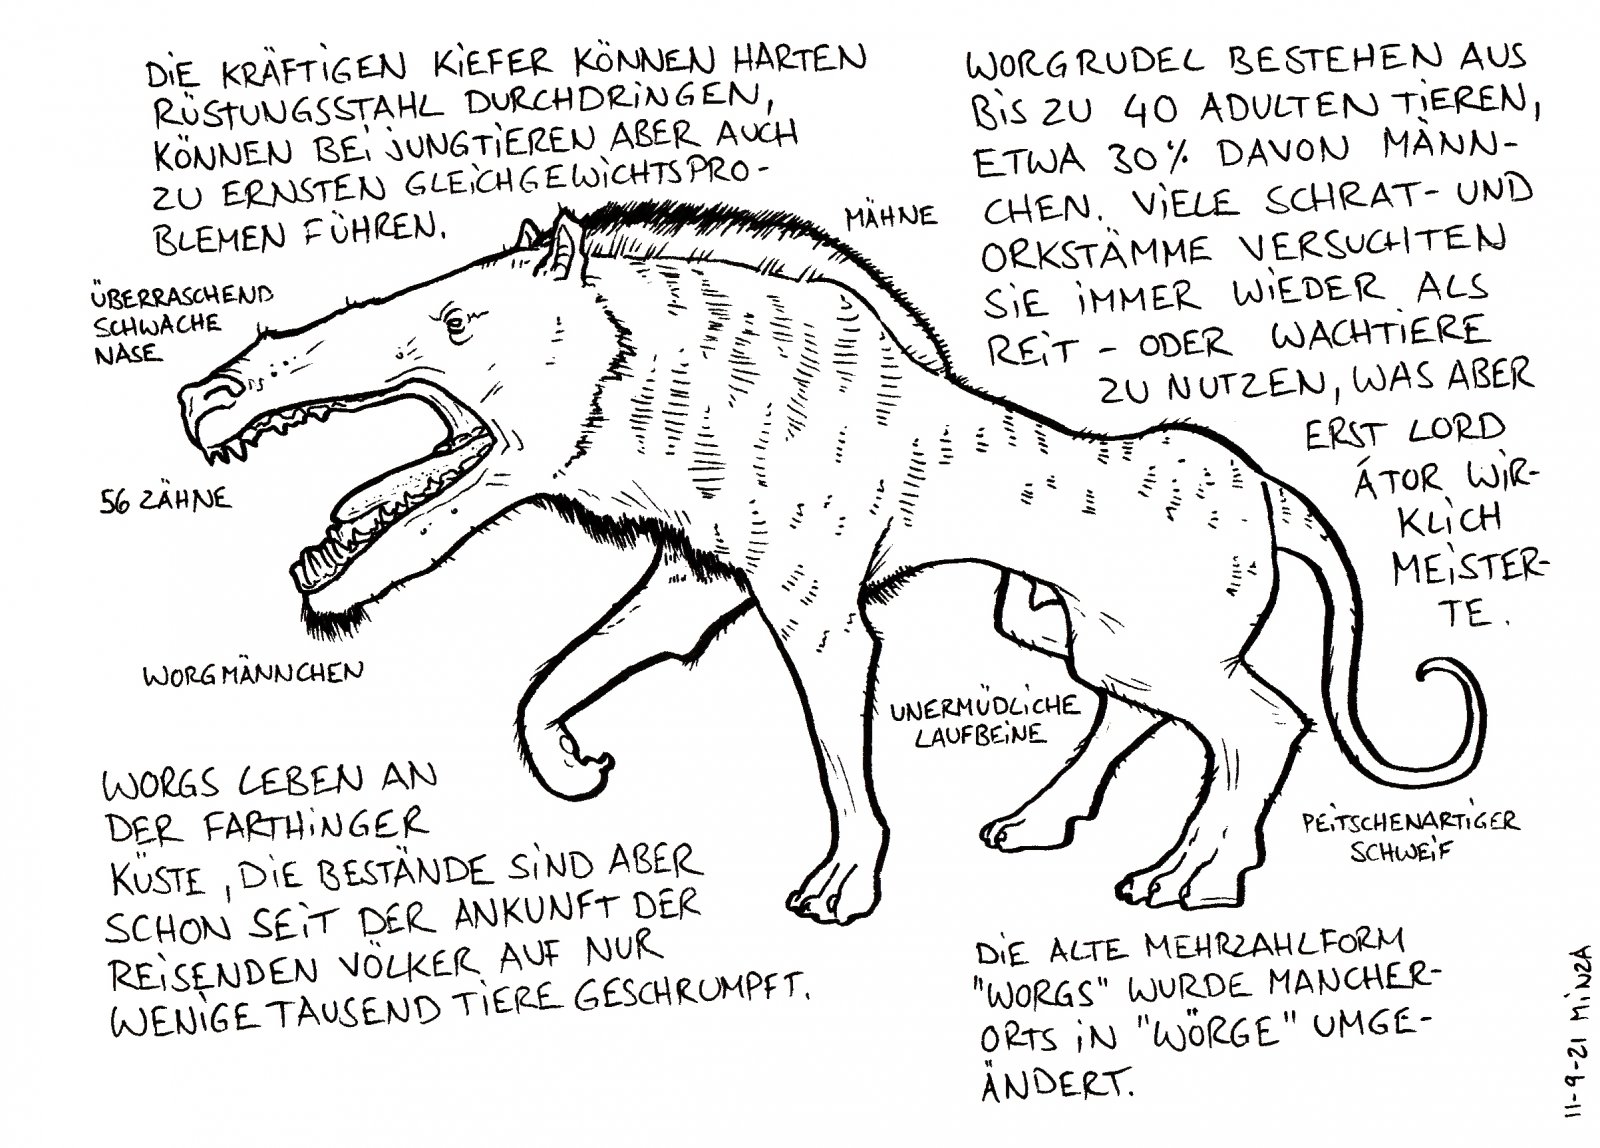 DIE KRÄFTIGEN KIEFER KÖNNEN HARTEN
RÜSTUNGSSTAHL DURCHDRINGEN,
KÖNNEN BEI JUNGTIEREN ABER AUCH
ZU ERNSTEN GLEICHGEWICHTSPRO-
BLEMEN FÜHREN.
WORGRUDEL BESTEHEN AUS
BIS ZU 40 ADULTEN TIEREN,
ETWA 30% DAVON MÄNN-
CHEN. VIELE SCHRAT- UND
ORKSTÄMME VERSUCHTEN
SIE IMMER WIEDER ALS
REIT- ODER WACHTIERE
ZU NUTZEN, WAS ABER
ERST LORD
ÁTOR WIR-
KLICH
MEISTER-
TE.
MÄHNE
ÜBERRASCHEND
SCHWACHE
NASE
56 ZÄHNE
WORGMÄNNCHEN
UNERMÜDLICHE
LAUFBEINE
PEITSCHENARTIGER
SCHWEIF
WORGS LEBEN AN
DER FARTHINGER
KÜSTE, DIE BESTÄNDE SIND ABER
SCHON SEIT DER ANKUNFT DER
REISENDEN VÖLKER AUF NUR
WENIGE TAUSEND TIERE GESCHRUMPFT.
DIE ALTE MEHRZAHLFORM
"WORGS" WURDE MANCHER-
ORTS IN "WÖRGE" UMGE-
ÄNDERT.
11-9-21 MINZA